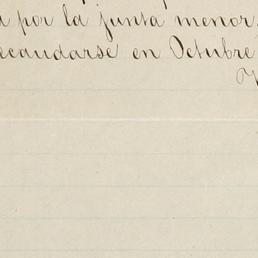 por la junta menor
ecaudarse en Octubre